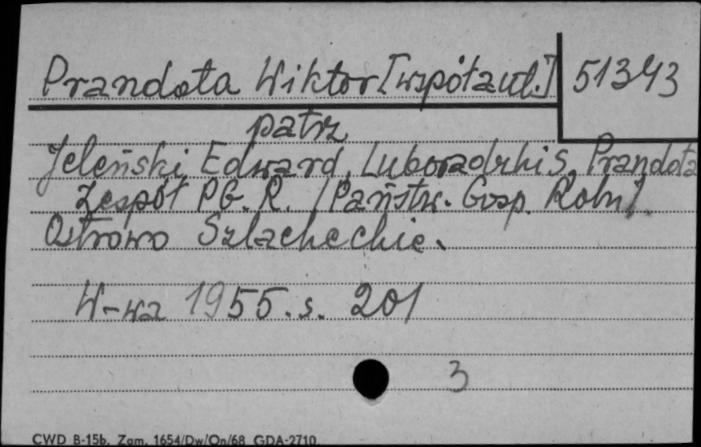 Prandota Wiktor [współaut.] 51343
patrz
Jeleński Edward, Luboradzki S, Prandota
Zespół PG. R. /Państw. Gosp. Roln/.
Ostrowo Szlacheckie.
W-wa 1955. s. 201
3
CWD B-15b. Zam. 1654/Dw/On/68 GDA-2710